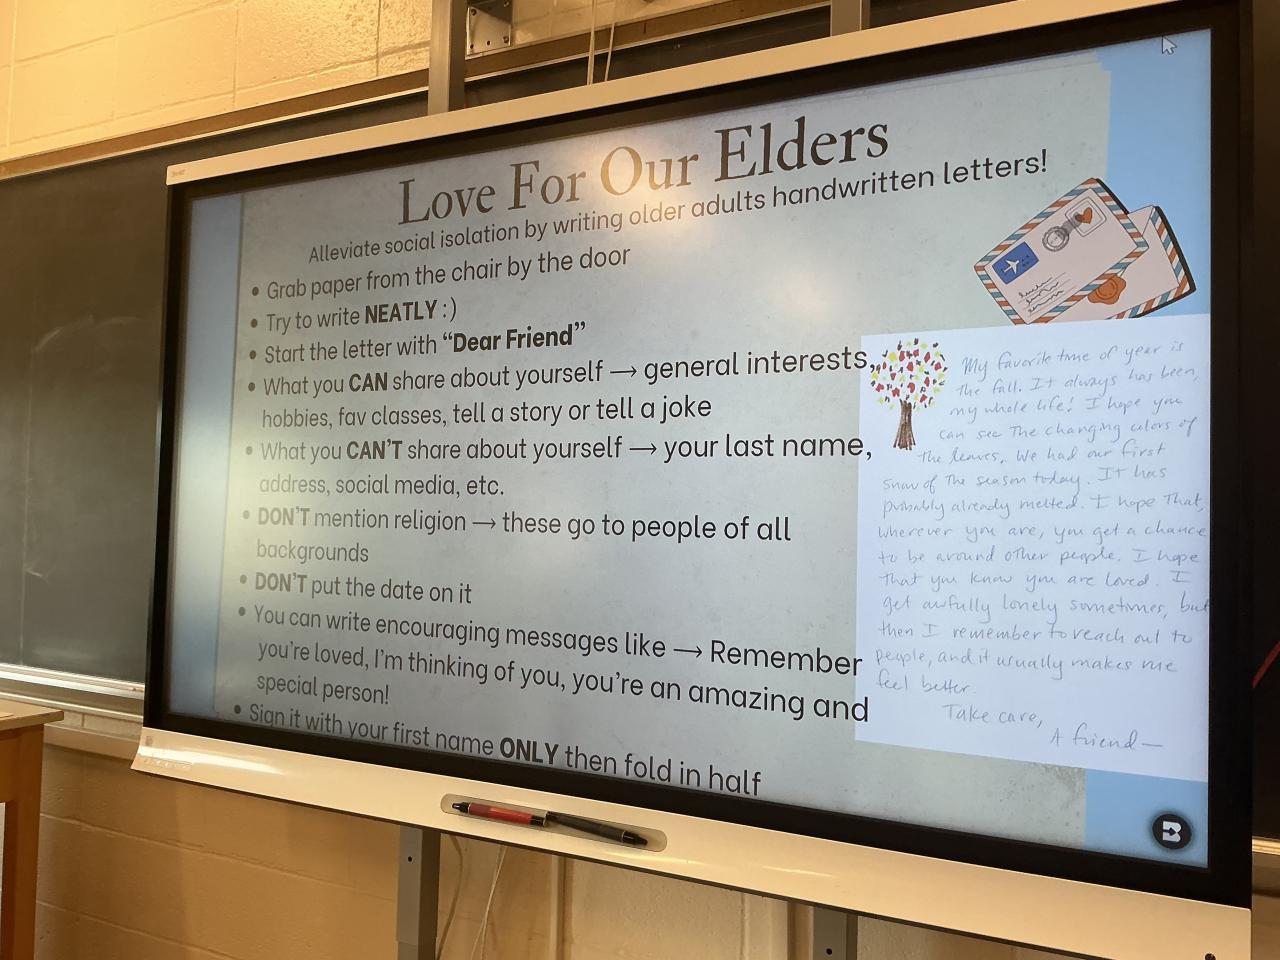 Love For Our Elders
Alleviate social isolation by writing older adults handwritten letters!
• Grab paper from the chair by the door
• Try to write NEATLY :)
• Start the letter with “Dear Friend”
• What you CAN share about yourself → general interests,
hobbies, fav classes, tell a story or tell a joke
• What you CAN'T share about yourself → your last name,
address, social media, etc.
• DON'T mention religion → these go to people of all
backgrounds
• DON'T put the date on it
• You can write encouraging messages like → Remember
you're loved, I'm thinking of you, you're an amazing and
special person!
• Sign it with your first name ONLY then fold in half
My favorite time of year is
the fall. It always has been,
my whole life! I hope you
can see the changing colors of
the leaves. We had our first
snow of the season today. It has
probably already melted. I hope that,
wherever you are, you get a chance
to be around other people. I hope
that you know you are loved. I
get awfully lonely sometimes, but
then I remember to reach out to
people, and it usually makes me
feel better.
Take care,
A friend—